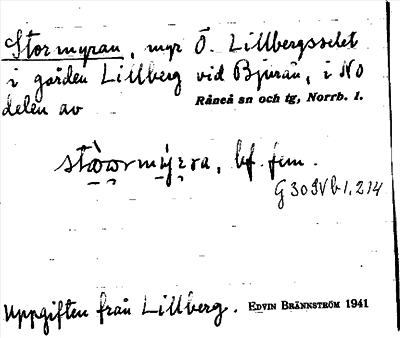 Stormyran, myr Ö. Lillbergsselet
i gården Lillberg vid Bjurån, i NO
delen av Råneå sn och tg, Norrb. l.
bf. fem.
G 30 IV b 1, 214
Uppgiften från Lillberg. EDVIN BRÄNNSTRÖM 1941